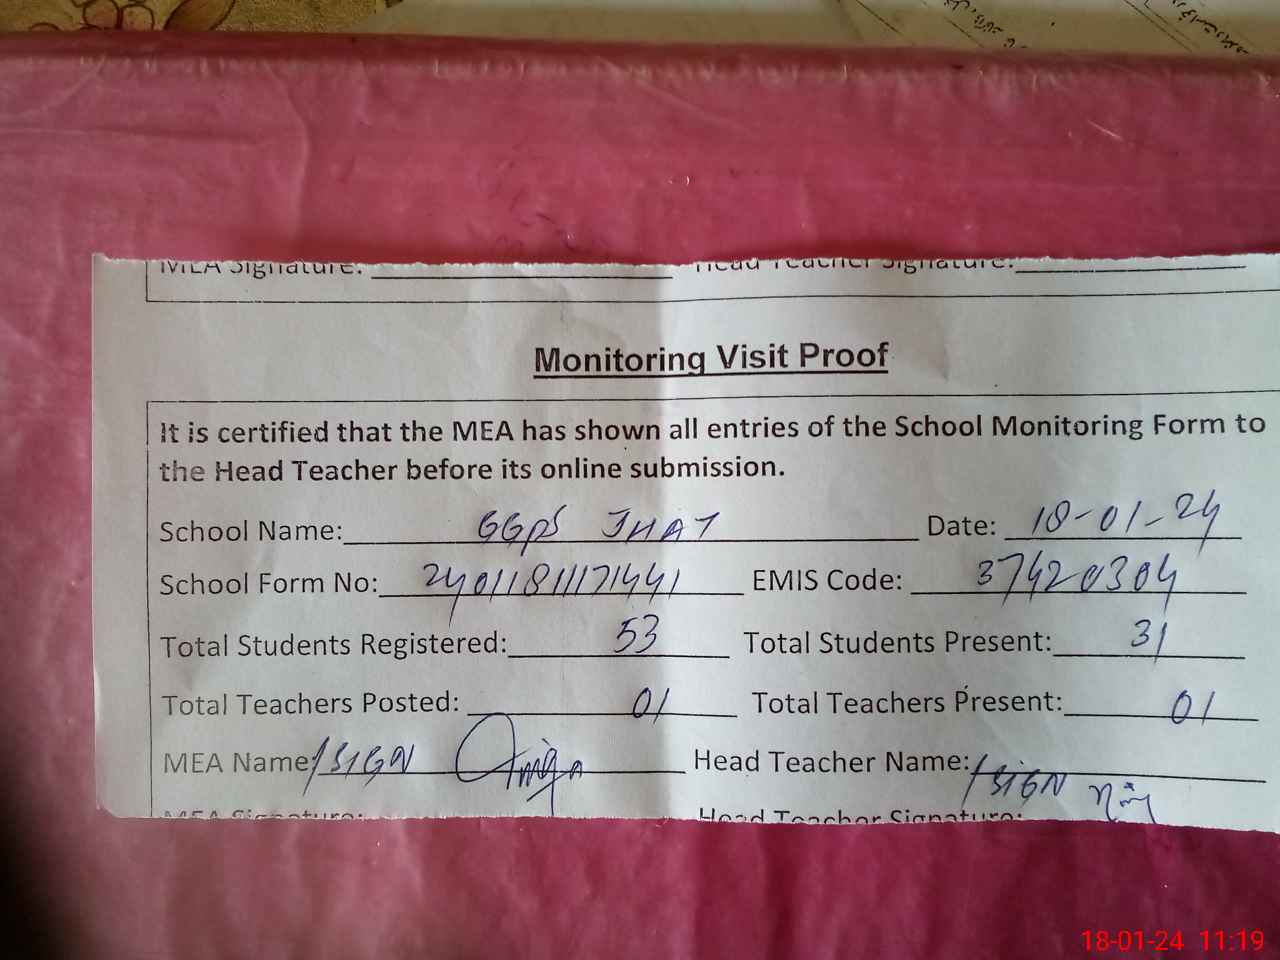 MEA Signature: Head Teacher Signature:
Monitoring Visit Proof
It is certified that the MEA has shown all entries of the School Monitoring Form to
the Head Teacher before its online submission.
School Name: GGPS JHAT Date: 18-01-24
School Form No: 2401181117 1441 EMIS Code: 37420304
Total Students Registered: 53 Total Students Present: 31
Total Teachers Posted: 01 Total Teachers Present: 01
MEA Name/SIGN Head Teacher Name:/SIGN
MEA Signature: Head Teacher Signature:
18-01-24 11:19